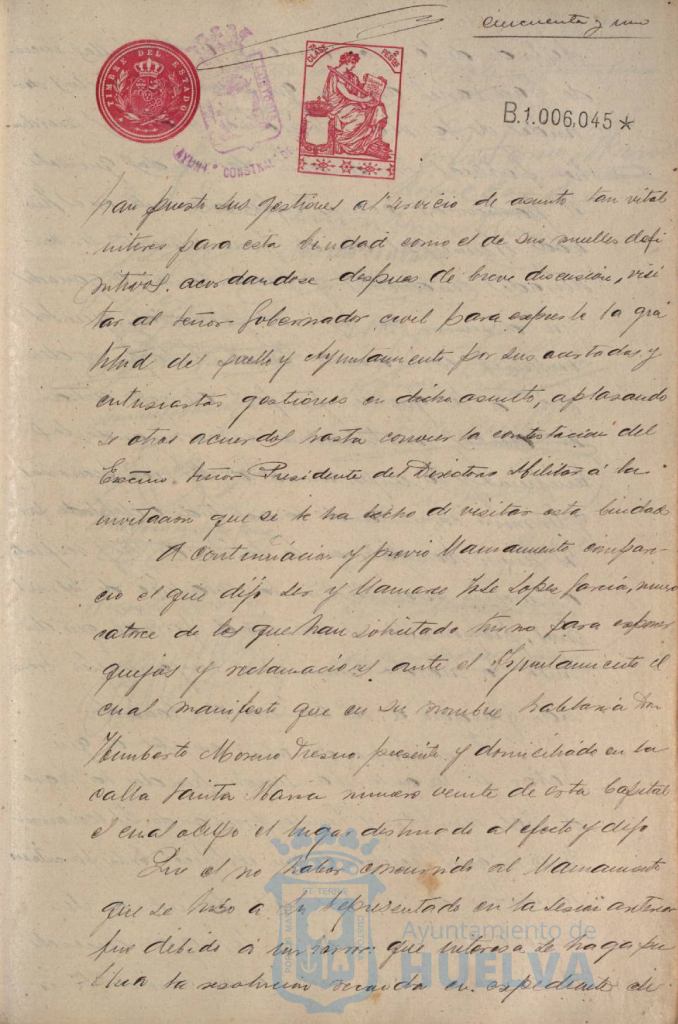 cincuenta y uno
TIMBRE DEL ESTADO
AYUNT° CONSTNAL
CLASE
PESETAS
B.1.006,045*
han puesto sus gestiones al servicio de asunto tan vital
interes para esta Ciudad como el de sus muelles defi
nitivos. acordandose despues de breve discusión, visi
tar al señor Gobernador civil para expresarle la gra
titud del pueblo y Ayuntamiento por sus acertadas y
entusiastas gestiones en dicho asunto, aplasando
se otros acuerdos hasta conocer la contestación del
Excmo. Señor Presidente del Directorio Militar á la
invitacion que se le ha hecho de visitar esta Ciudad
A continuacion y previo llamamiento compare-
cio el que dijo ser y llamarse José Lopez Garcia, numero
catorce de los que han solicitado turno para exponer
quejas y reclamaciones ante el Ayuntamiento el
cual manifesto que en su nombre hablaria Don
Humberto Moreno presente y domiciliado en la
calle Santa Maria numero veinte de esta Capital
el cual el lugar destinado al efecto y dijo
Que el no haber concurrido al llamamiento
que se hizo a su representado en la sesion anterior
fue debido á un error: que interesa se haga pu
blica la resolucion recaida en expediente de
Ayuntamiento de
HUELVA